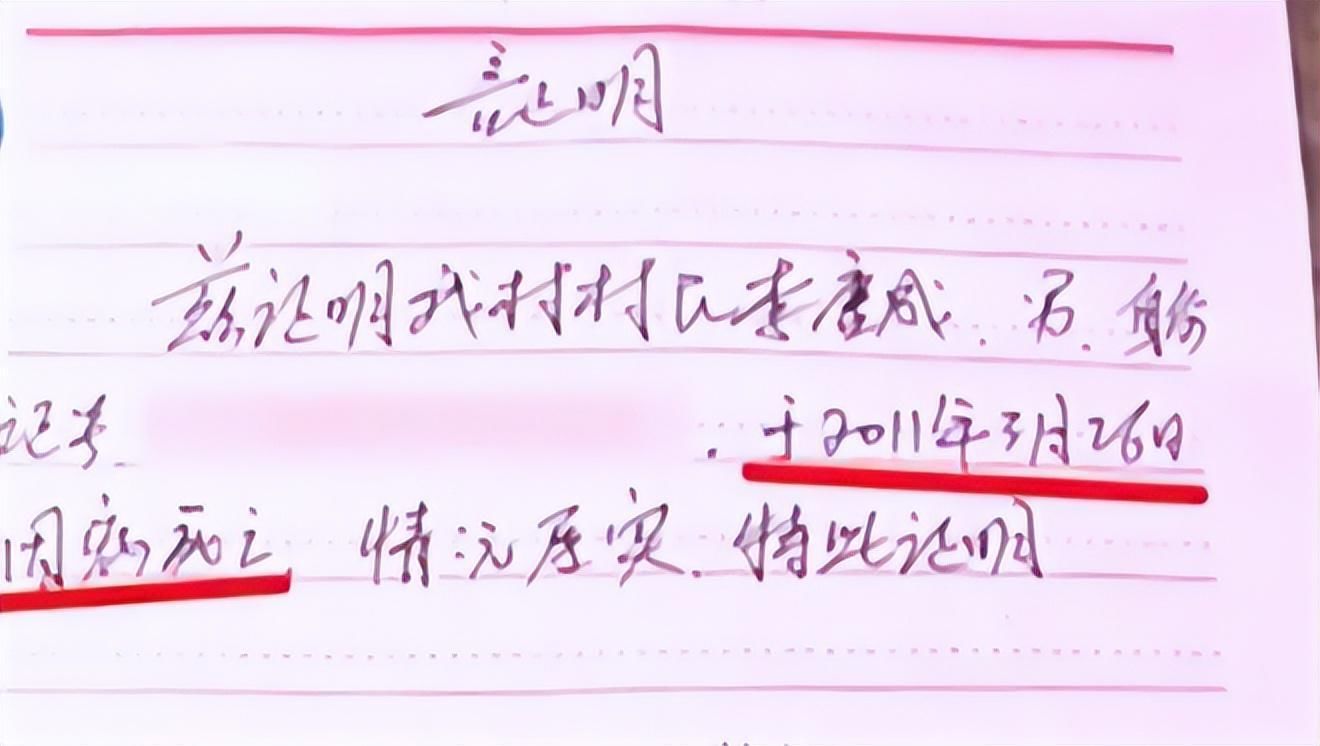 证明
兹证明我村村民李成.男.身份
证号.于2011年3月26日
因病死亡 情况属实.特此证明